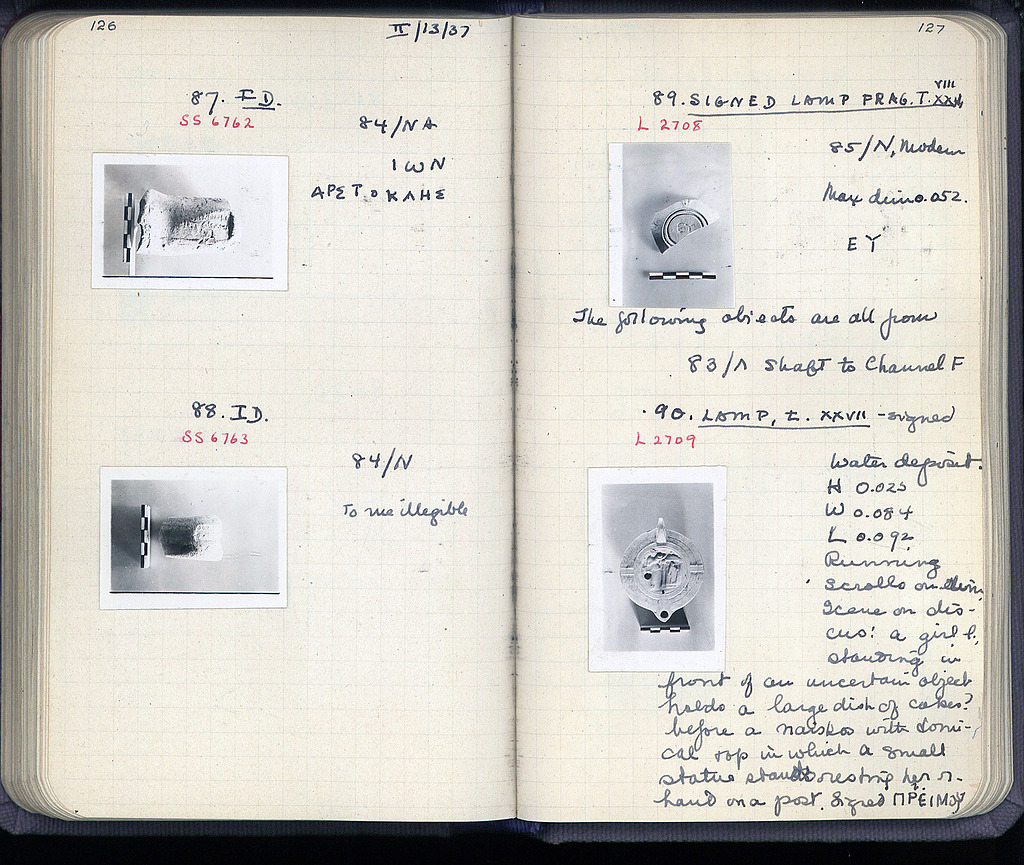 126
II/13/37
87. I D.
SS 6762
84/NA
ΙωΝ
ΑΡΣΤΟΚΛΗΣ
88. ID.
SS 6763
84/N
To me illegible
127
89. SIGNED LAMP FRAG. T. XXVIII
L 2708
85/N, Modern
Max dim 0.052.
ΕΥ
The following objects are all from
83/Λ Shaft to Channel F
90. LAMP, t. XXVII - signed
L 2709
Water deposit.
H 0.025
W 0.084
L 0.092
Running
scrolls on
Scene on dis-
cus: a girl l.
standing in
front of an uncertain object
holds a large dish of cakes?
before a naiskos with domi-
cal top in which a small
statue stands resting her r.
hand on a post. Signed ΠΡΕΙΜΟΥ